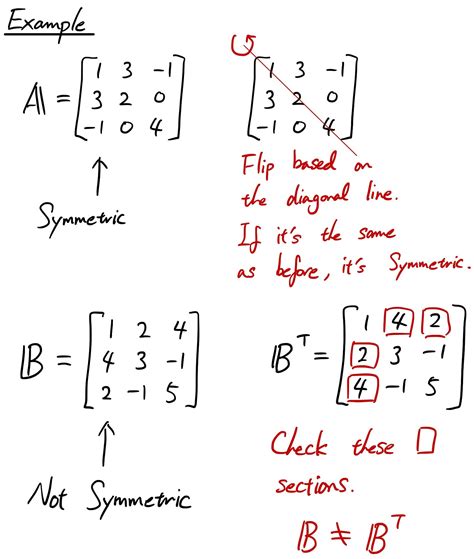 Example
A = [1 3 -1
3 2 0
-1 0 4]
↑
Symmetric
[1 3 -1
3 2 0
-1 0 4]
Flip based on
the diagonal line.
If it's the same
as before, it's Symmetric.
B = [1 2 4
4 3 -1
2 -1 5]
↑
Not Symmetric
Bᵀ = [1 4 2
2 3 -1
4 -1 5]
Check these □
sections.
B ≠ Bᵀ